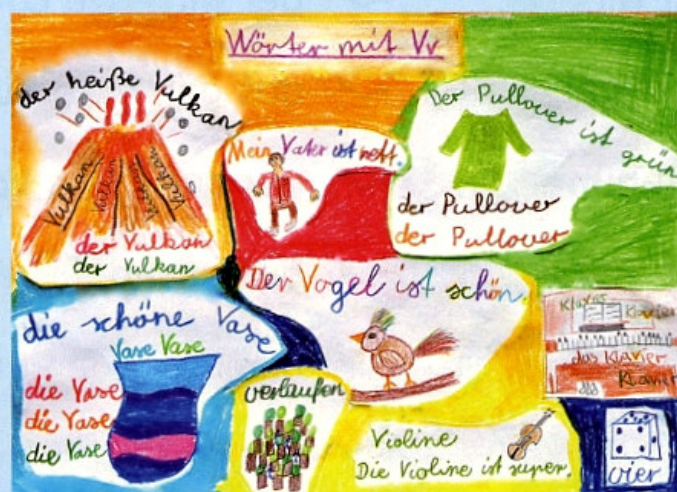 Wörter mit Vv
der heiße Vulkan
Vulkan
Vulkan
Vulkan
Vulkan
der Vulkan
der Vulkan
Mein Vater ist nett.
Der Pullover ist grün
der Pullover
der Pullover
Der Vogel ist schön.
die schöne Vase
Vase Vase
die Vase
die Vase
die Vase
verlaufen
Violine
Die Violine ist super.
Klavier
Klavier
das Klavier
Klavier
vier